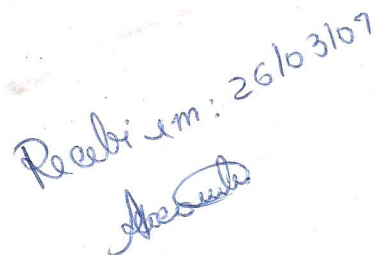 Recebi em: 26/03/09